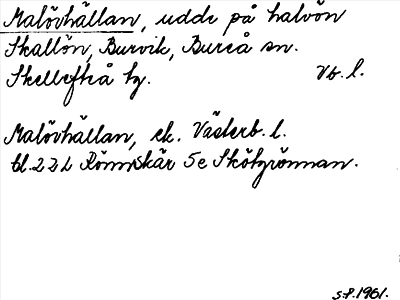 Malövhällan, udde på halvön
Skallön, Burvik, Bureå sn.
Skellefteå tg. Vb. l.
Malövhällan, ek. Västerb. l.
bl. 22 L Rönnskär 5e Skötgrönnan.
S.P. 1961.